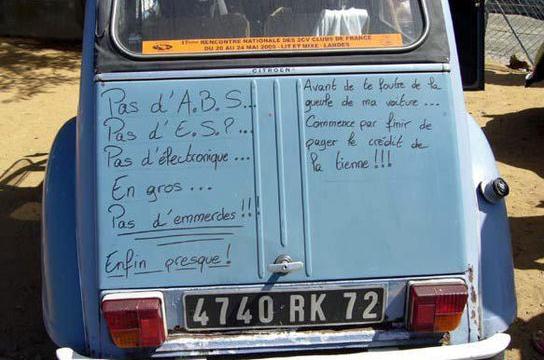 17ème RENCONTRE NATIONALE DES 2CV CLUBS DE FRANCE
DU 20 AU 24 MAI 2005 - LIT ET MIXE - LANDES
CITROËN
Pas d'A.B.S...
Pas d'E.S.P...
Pas d'électronique...
En gros...
Pas d'emmerdes!!!
Enfin presque!
Avant de te foutre de la
gueule de ma voiture...
Commence par finir de
payer le crédit de
la tienne!!!
4740 RK 72